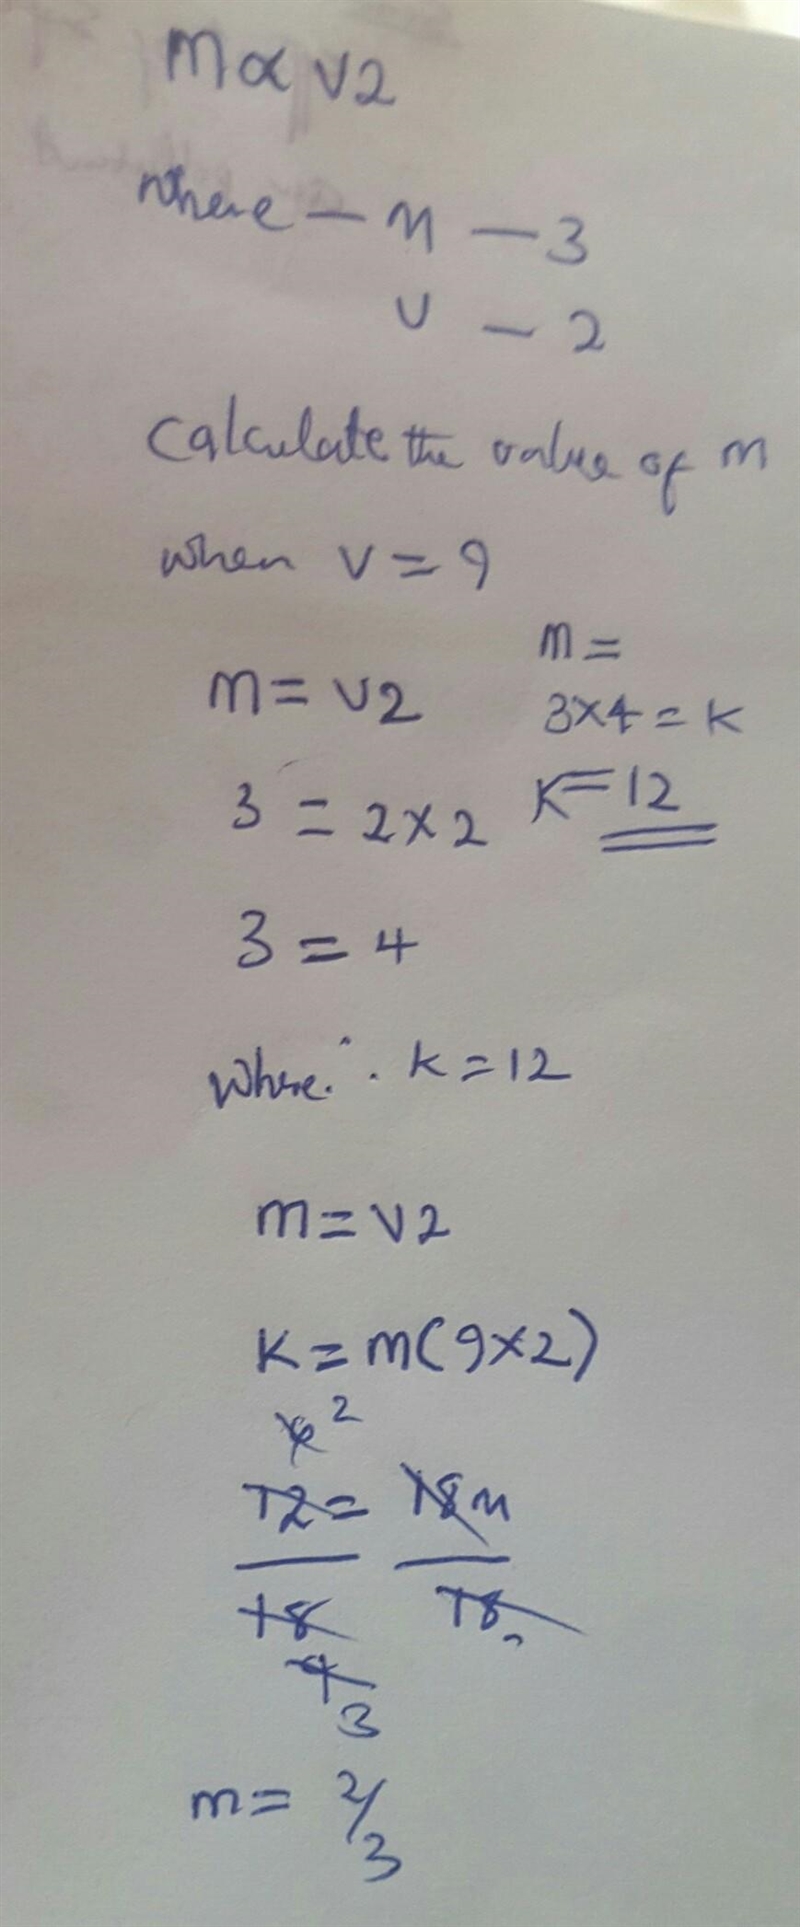 m ∝ v2
where - m - 3
v - 2
Calculate the value of m
when v = 9
m = v2
3 = 2 × 2
3 = 4
m =
3×4 = k
K = 12
where ∴ k = 12
m = v2
K = m(9×2)
6 2
12 = 18m
18 18
9
3
m = 2/3